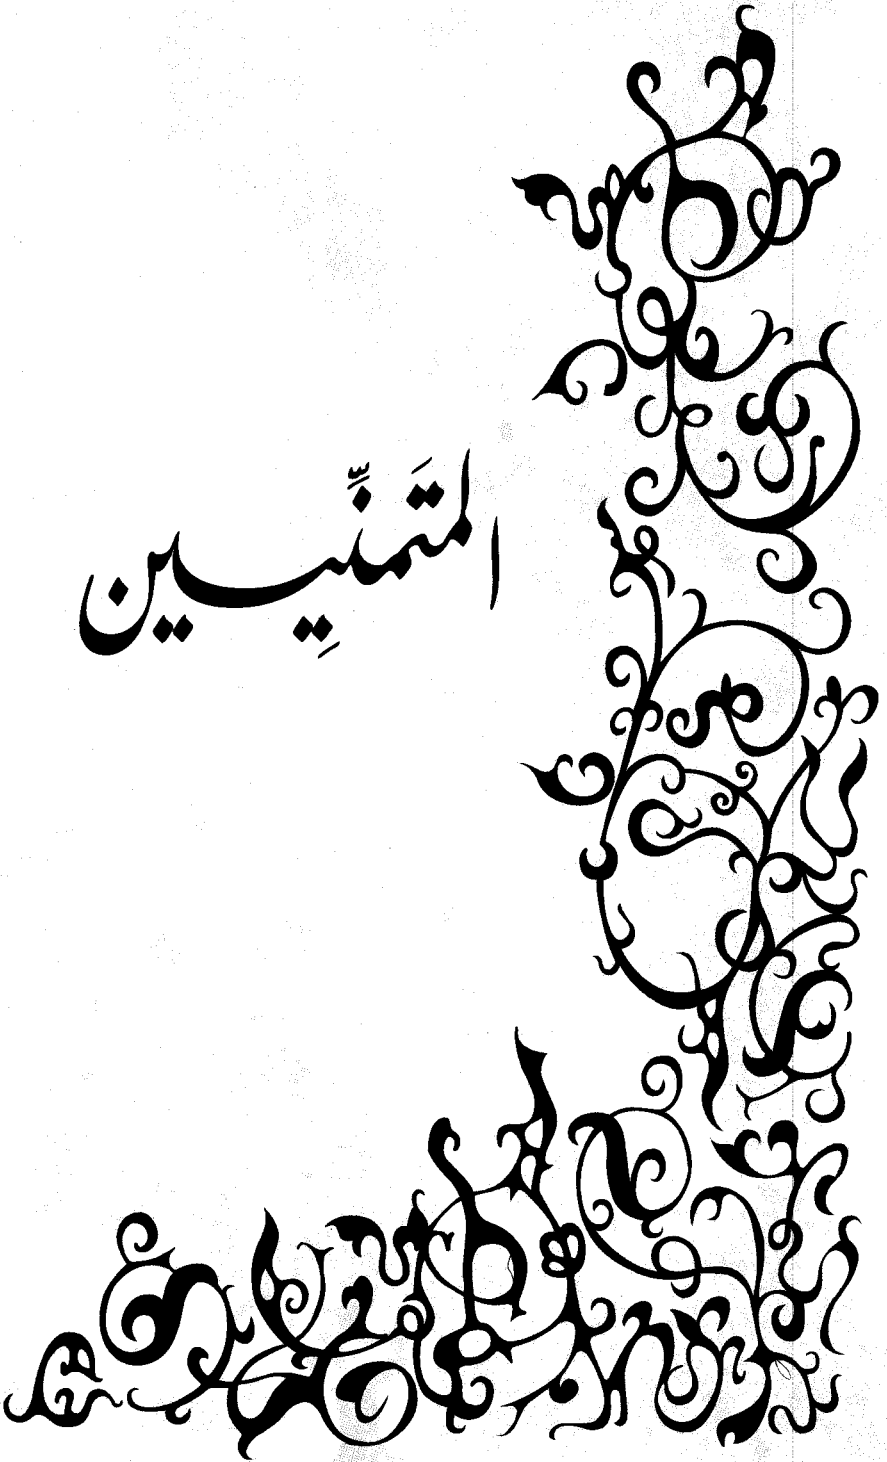 المتَمنِّيِين